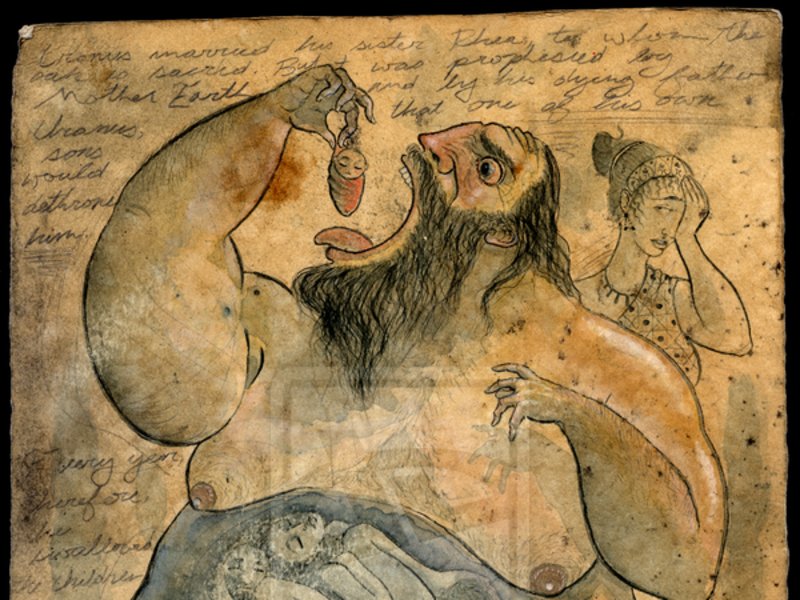 Cronus married his sister Rhea, to whom the
oak is sacred. But it was prophesied by
Mother Earth and by his dying father
Uranus, that one of his own
sons
would
dethrone
him.
Every year,
therefore
he
swallowed
the children